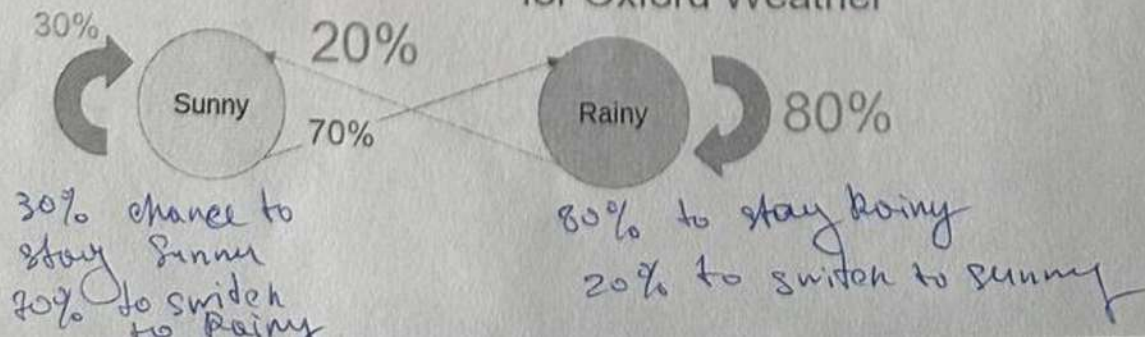 for Oxford Weather
30%
20%
Sunny
70%
Rainy
80%
30% chance to
stay Sunny
70% to switch
to Rainy
80% to stay Rainy
20% to switch to sunny